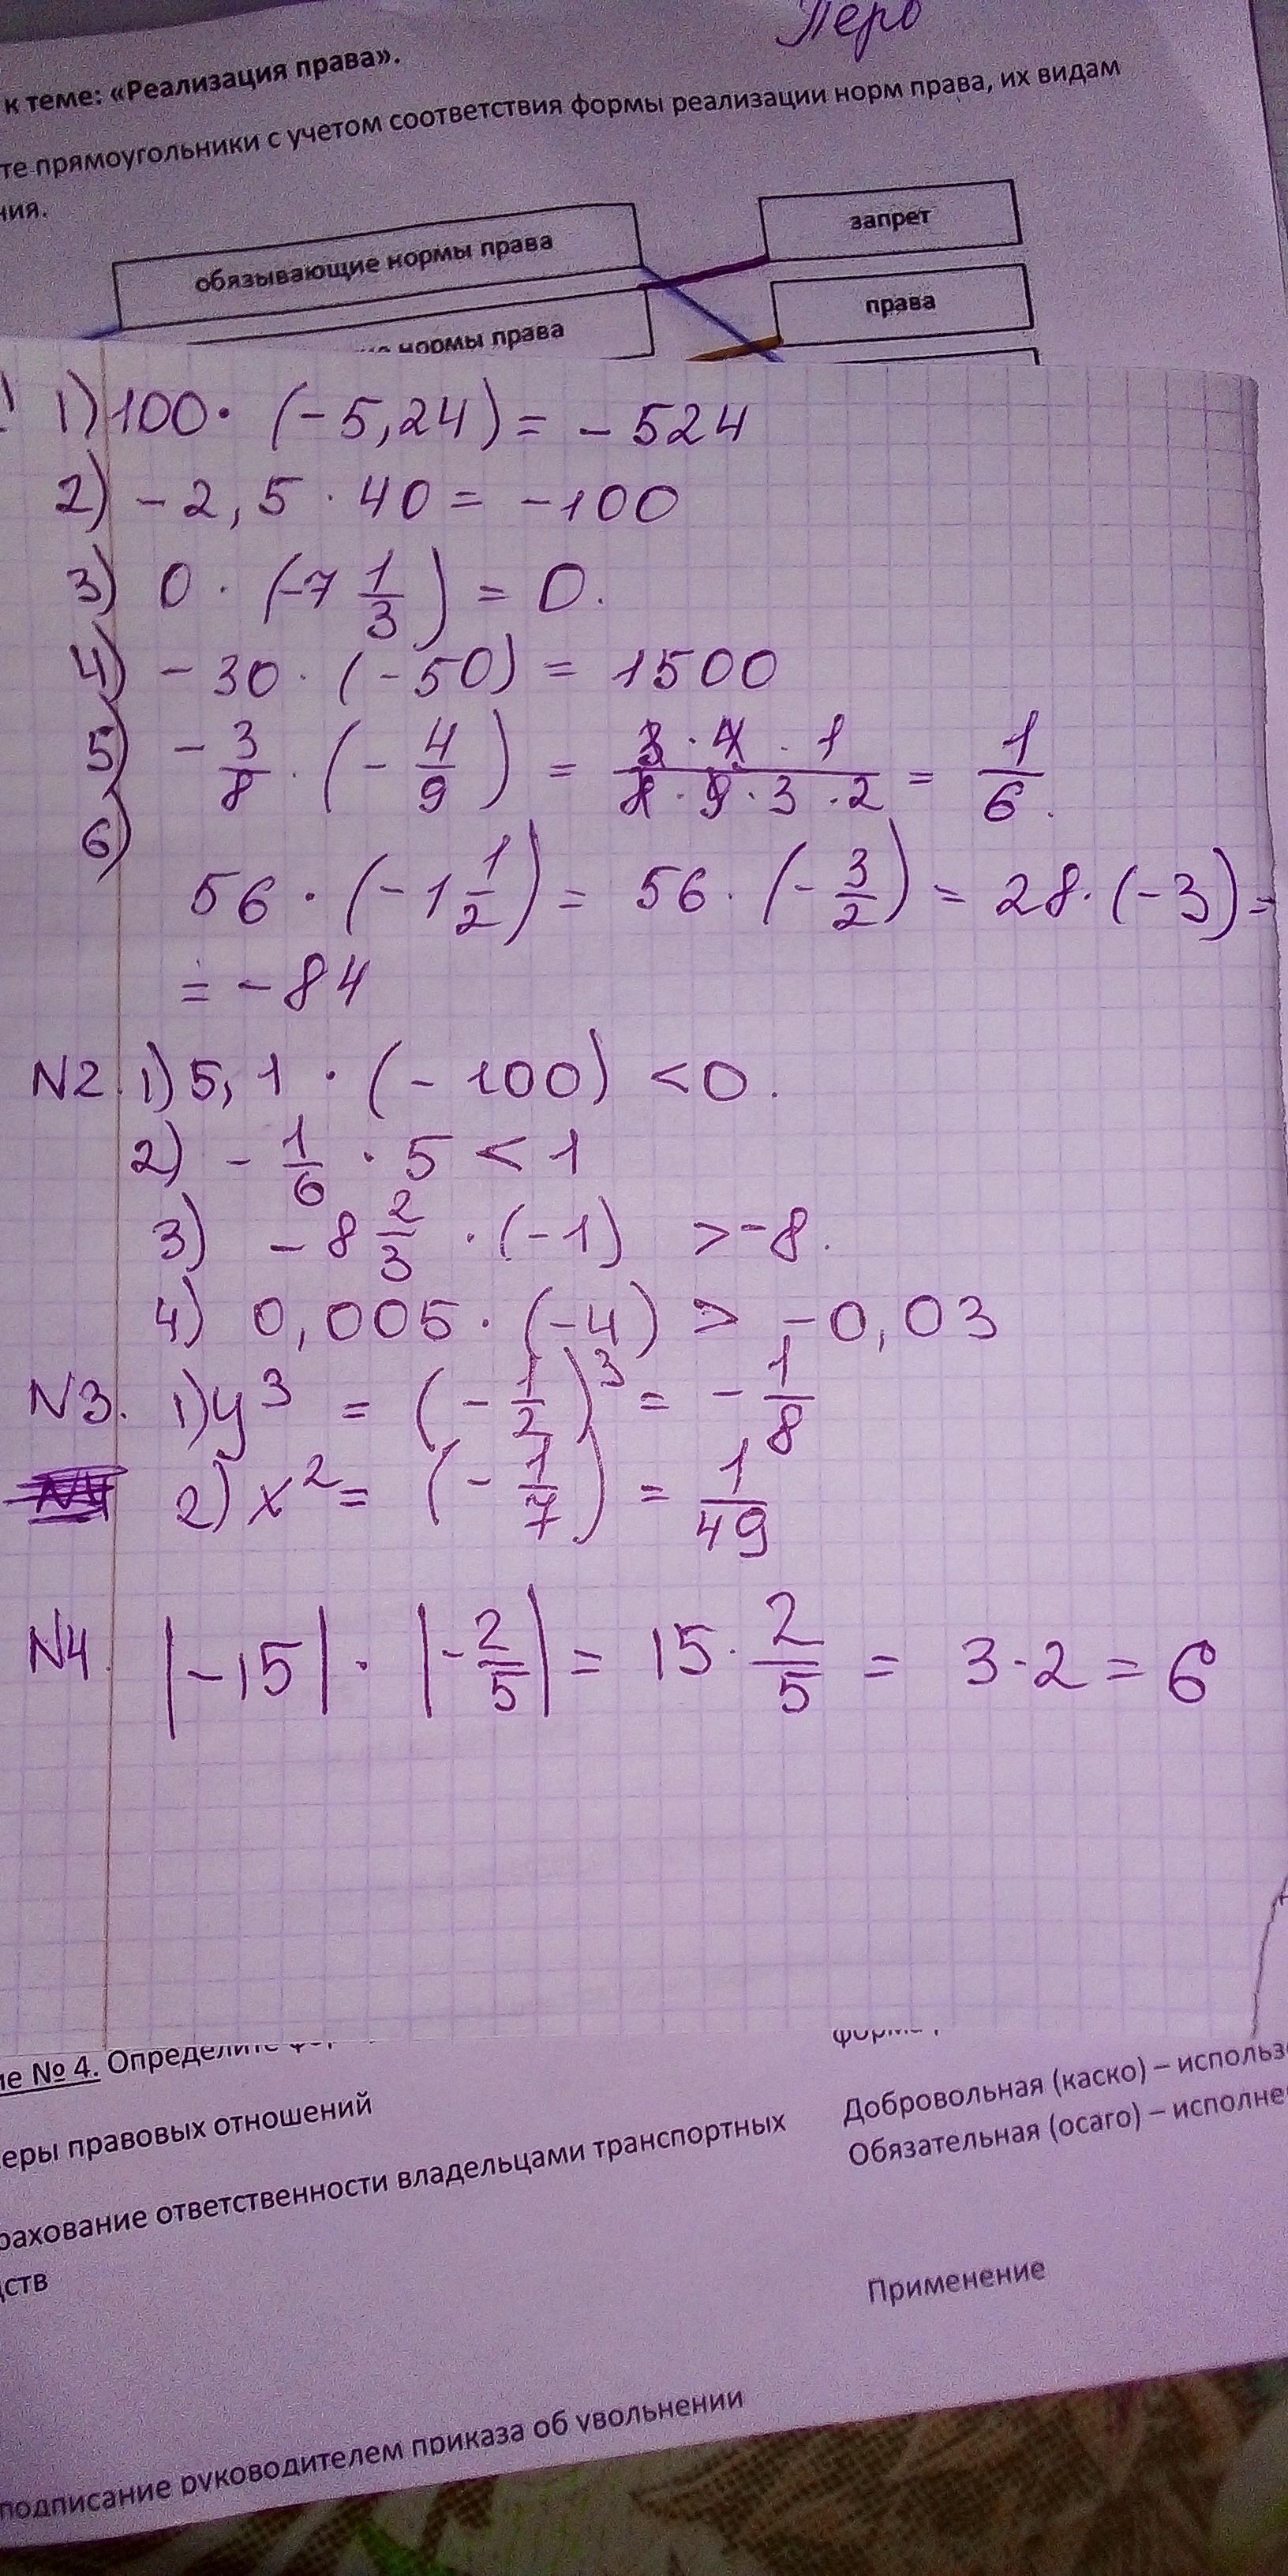 Перв
к теме: «Реализация права».
те прямоугольники с учетом соответствия формы реализации норм права, их видам
ния.
обязывающие нормы права
запрет
нормы права
права
1) 100 · (-5,24) = -524
2) -2,5 · 40 = -100
3) 0 · (-7 1/3) = 0.
4) -30 · (-50) = 1500
5) -3/8 · (-4/9) = 3·4·1/8·9·3·2 = 1/6.
6)
56 · (-1 1/2) = 56 · (-3/2) = 28 · (-3) =
= -84
N2. 1) 5,1 · (-100) < 0.
2) -1/6 · 5 < 1
3) -8 2/3 · (-1) > -8.
4) 0,005 · (-4) > -0,03
N3. 1) y³ = (-1/2)³ = -1/8
2) x² = (-1/7) = 1/49
N4. |-15| · |-2/5| = 15 · 2/5 = 3·2 = 6
ие № 4. Определите
еры правовых отношений
Добровольная (каско) – использ
рахование ответственности владельцами транспортных
Обязательная (осаго) – исполне
дств
Применение
подписание руководителем приказа об увольнении